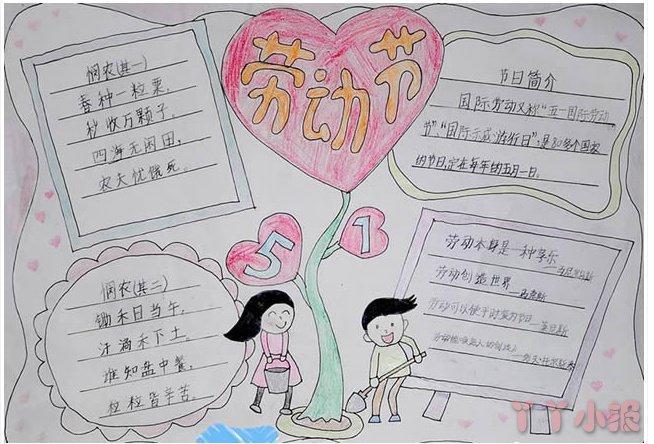 劳动节
5
1
悯农(其一)
春种一粒粟,
秋收万颗子.
四海无闲田,
农夫犹饿死。
悯农(其二)
锄禾日当午,
汗滴禾下土。
谁知盘中餐,
粒粒皆辛苦。
节日简介
国际劳动又称“五一国际劳动
节”、“国际示威游行日”,是80多个国家
的节日,定在每年的五月一日。
劳动本身是一种享乐
劳动创造世界——马克思
劳动可以使
丫丫小报